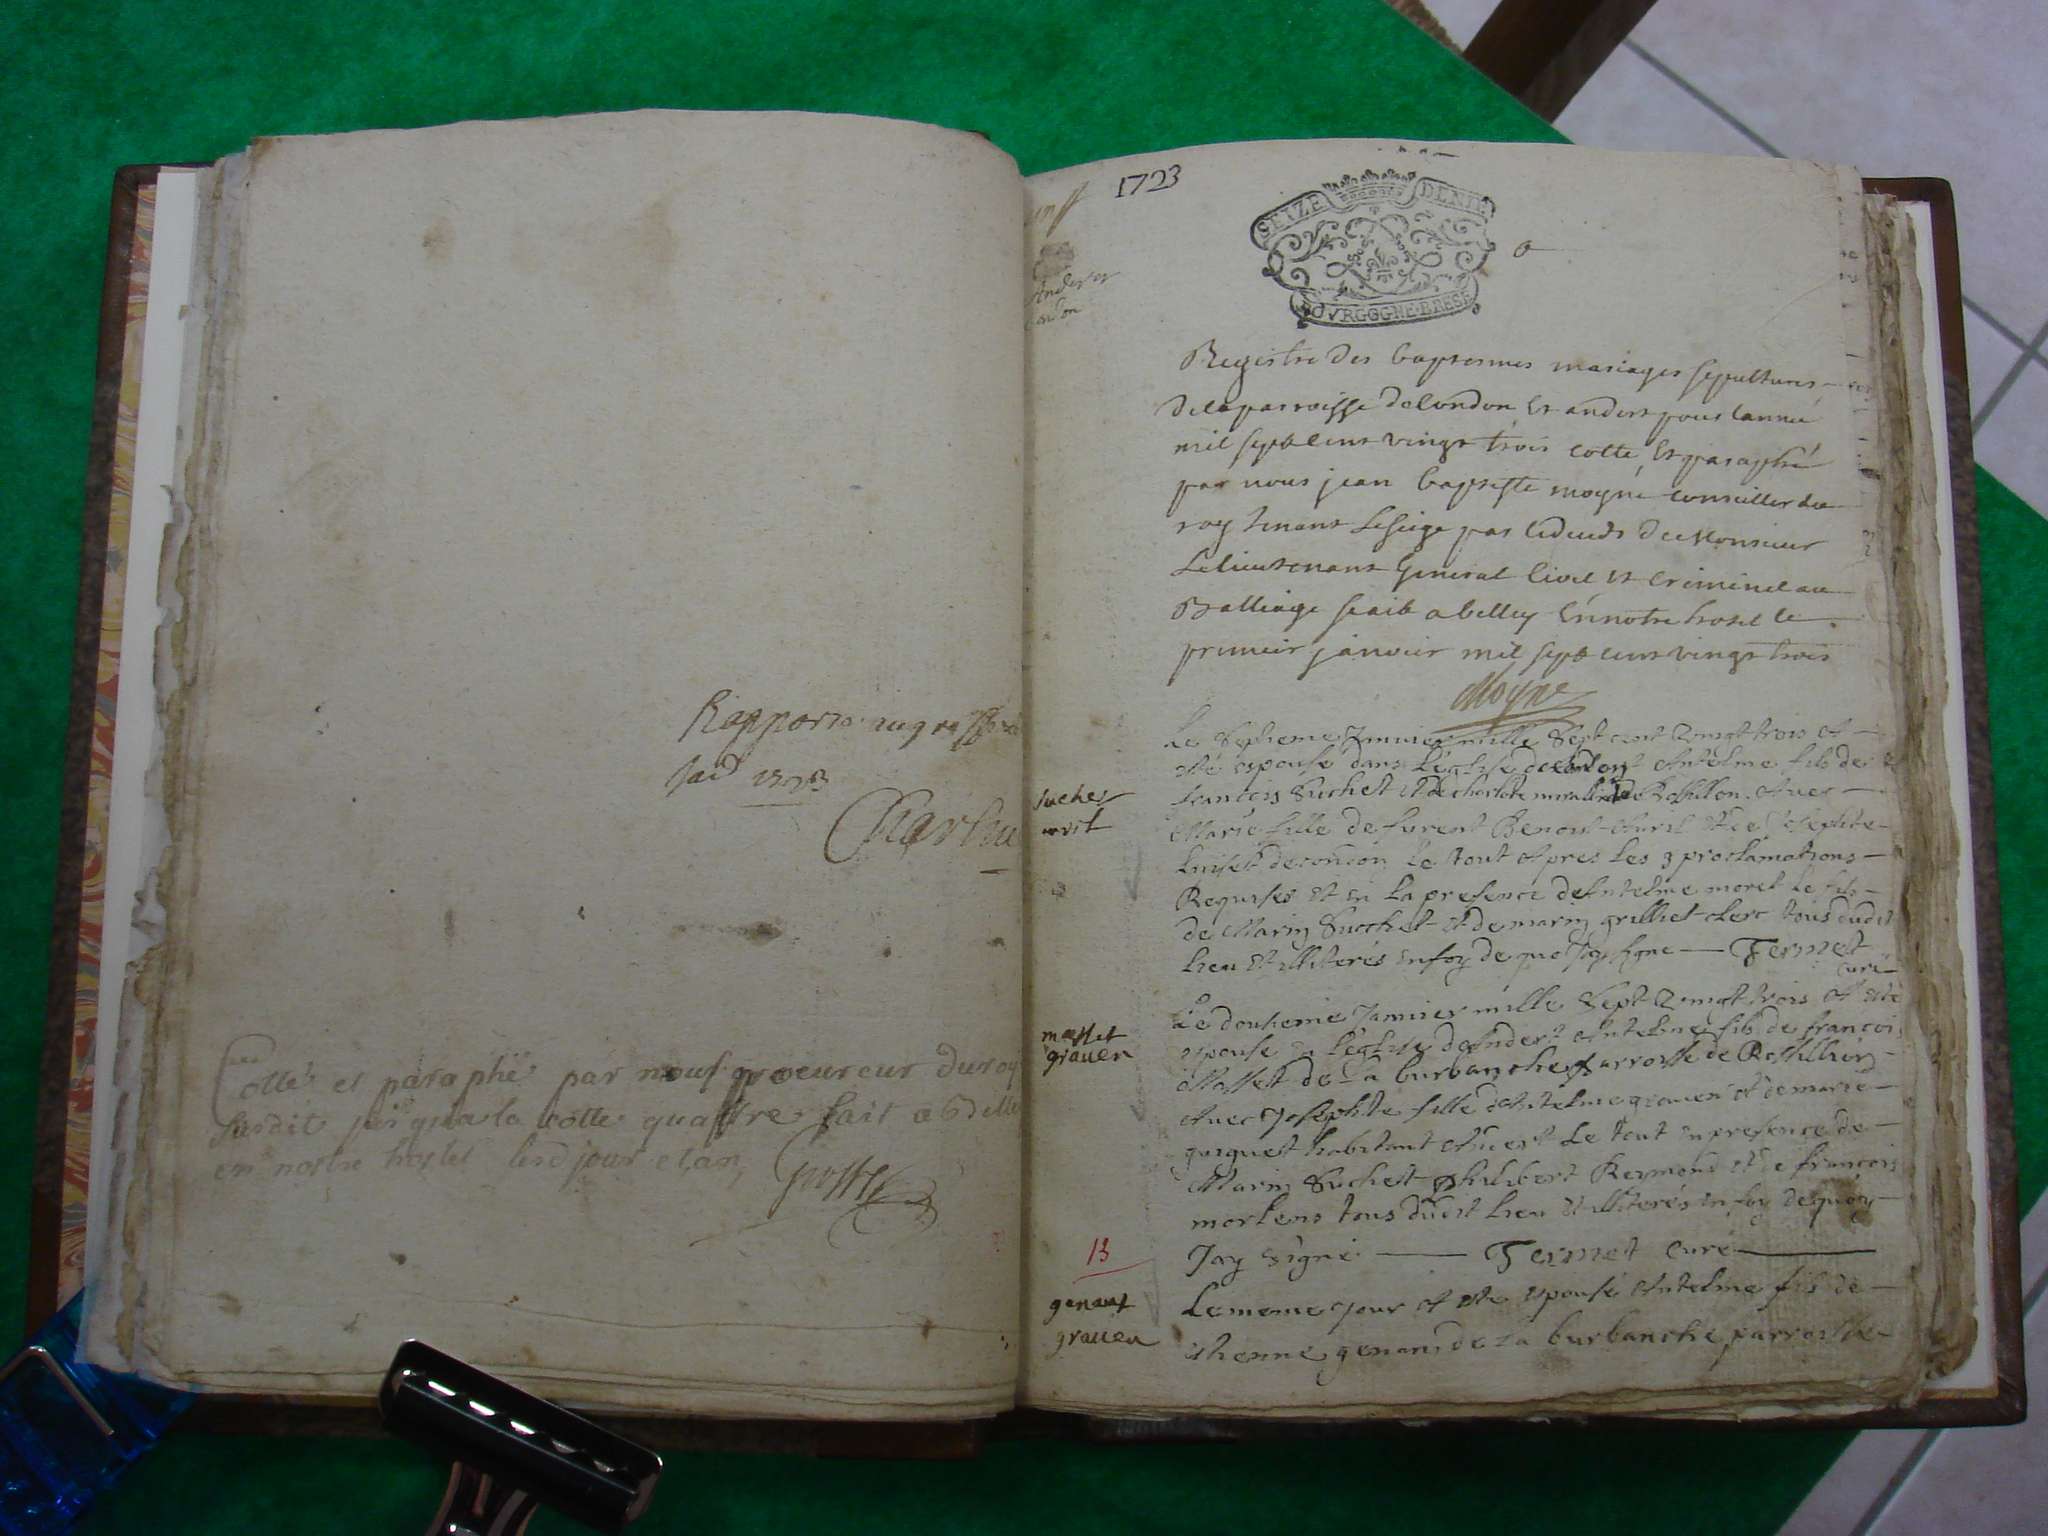 Rapporté au greffe
Jand 1723
Cotté et paraphé par nous procureur du roy
susdit jusqua la cotte quattre fait a Belley
en nostre hostel lesd jour et an
1723
SEIZE DENIE
BOVRGOGNE·BRESE
Andert
Condon
Registre des baptesmes mariages sepultures
de la parroisse de Condon et andert pour lannée
mil sept cent vingt trois cotté et paraphé
par nous jean baptiste moyne conseiller du
roy tenant le siege par de Monsieur
Le lieutenant general civil et criminel au
Balliage a belley en notre hotel le
premier janvier mil sept cent vingt trois
Moyne
suchet
avril
Le Janvier mille Sept cent vingt trois at
eté epousé dans l'eglise de Antelme fils de
francois Suchet et de de Rossillon avec
Marie fille de Benoit avril et de Josephte
de le tout apres les 3 proclamations
Requises et en la presence de Antelme moret le fils
de Marin Succhet et de marin grilliet clerc tous dudit
lieu et illiterés en foy de quoi jay signe Fernet
curé
masset
grauen
Le douhieme Janvier mille Sept vingt trois at eté
epousé en l'eglise dAndert Antelme fils de francois
Masset de La burbanche parroisse de Rossillion
avec Josephte fille dAntelme grauen et de marie
habitant Le tout en presence de
Marin Suchet Philibert Reymond et de francois
tous dudit lieu et illiterés en foy de quoy
Jay signé Fernet curé
13
genant
grauen
Le meme jour at eté epousé Antelme fils de
etienne genand de La burbanche parroisse